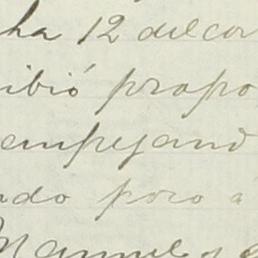 ha 12 del cor
ibió propo
ampezand
ndo poco a
Manuel y